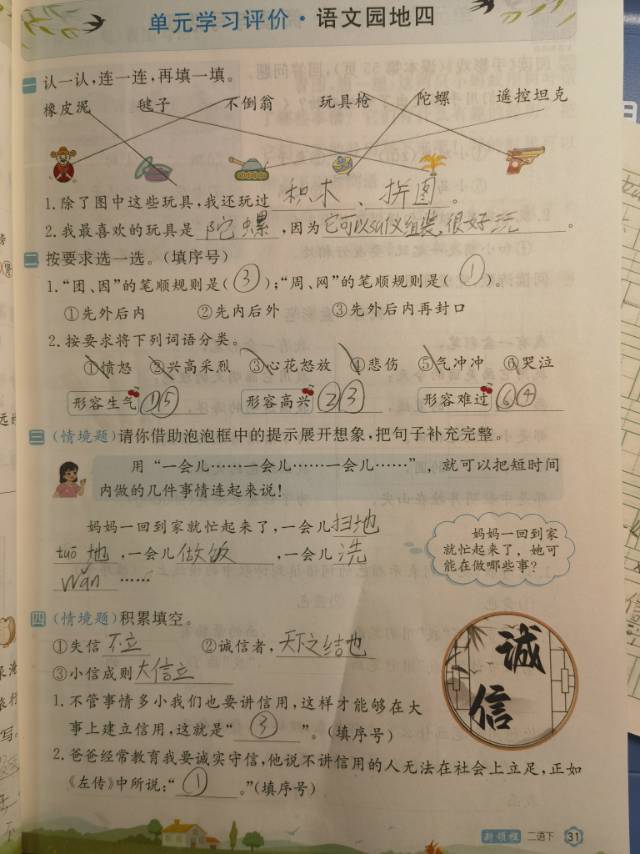 单元学习评价·语文园地四
一 认一认,连一连,再填一填。
橡皮泥 毽子 不倒翁 玩具枪 陀螺 遥控坦克
1.除了图中这些玩具,我还玩过 积木 、 拼图 。
2.我最喜欢的玩具是 陀螺 ,因为它可以 组装,很好玩 。
二 按要求选一选。(填序号)
1.“团、因”的笔顺规则是(③);“周、网”的笔顺规则是(①)。
①先外后内 ②先内后外 ③先外后内再封口
2.按要求将下列词语分类。
①愤怒 ②兴高采烈 ③心花怒放 ④悲伤 ⑤气冲冲 ⑥哭泣
形容生气①⑤ 形容高兴②③ 形容难过⑥④
三 (情境题)请你借助泡泡框中的提示展开想象,把句子补充完整。
用“一会儿……一会儿……一会儿……”,就可以把短时间
内做的几件事情连起来说!
妈妈一回到家就忙起来了,一会儿扫地
tuō 地 ,一会儿做饭 ,一会儿 洗
wǎn ……
妈妈一回到家
就忙起来了,她可
能在做哪些事?
四 (情境题)积累填空。
①失信 不立 ②诚信者,天下之结也
③小信成则大信立
诚
信
1.不管事情多小我们也要讲信用,这样才能够在大
事上建立信用,这就是“ ③ ”。(填序号)
2.爸爸经常教育我要诚实守信,他说不讲信用的人无法在社会上立足,正如
《左传》中所说:“ ① 。”(填序号)
新领程 二语下 31